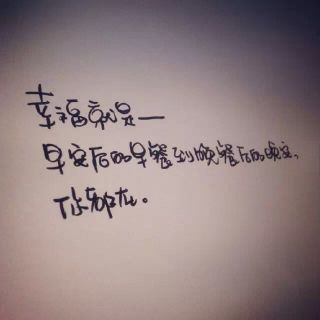 幸福就是一
早安后的早餐到晚餐后的晚安,
你都在。